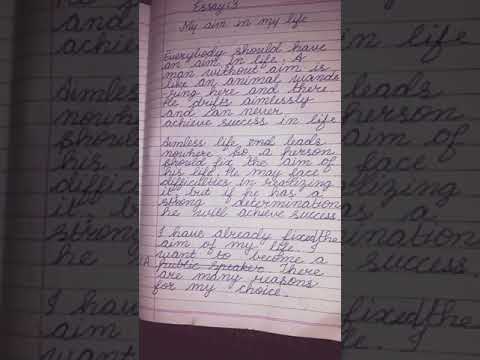 Essay:3
My aim in my life
Everybody should have
an aim in life. A
man without aim is
like an animal wande
ring here and there
He drifts aimlessly
and can never
achieve success in life
Aimless life end leads
nowhere So, a person
should fix the aim of
his life. He may face
difficulties in realizing
it but if he has a
strong determination
he will achieve success.
I have already fixed the
aim of my life. I
want to become a
A public speaker There
are many reasons
for my choice.